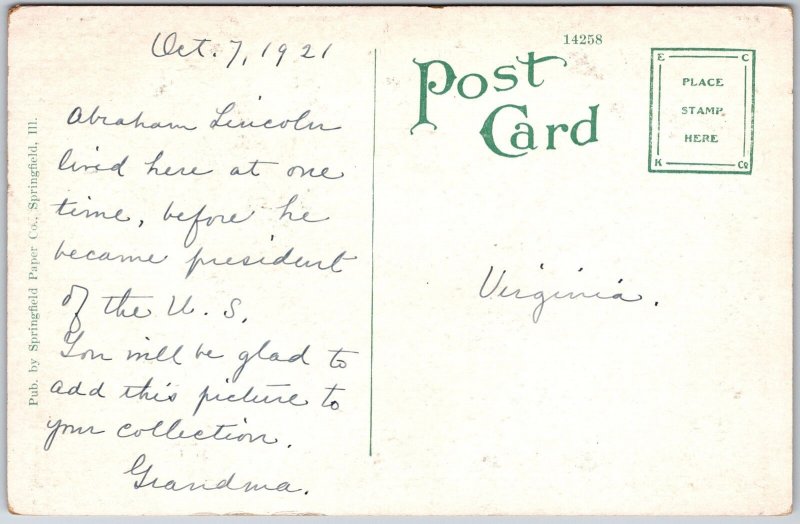 Oct. 7, 1921
Abraham Lincoln
lived here at one
time, before he
became president
of the U. S.
You will be glad to
add this picture to
your collection.
Grandma.
Pub. by Springfield Paper Co., Springfield, Ill.
14258
Post
Card
E C
PLACE
STAMP
HERE
K Co
Virginia.